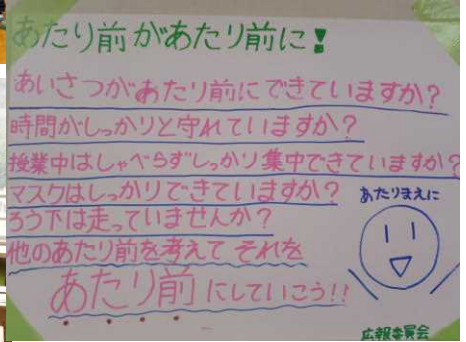 あたり前があたり前に!
あいさつがあたり前にできていますか?
時間がしっかりと守れていますか?
授業中はしゃべらずしっかり集中できていますか?
マスクはしっかりできていますか?
ろう下は走っていませんか?
他のあたり前を考えて それを
あたり前にしていこう!!
あたりまえに
広報委員会